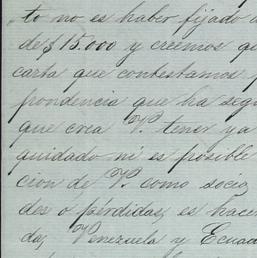 to no es haber fijado
de $15.000 y creemos qu
carta que contestamos
pondencia que ha seg
que crea V. tener ya
quidado ni es posible
cion de V. como socio
des o pérdidas, es hacer
da, Venezuela y Ecuad